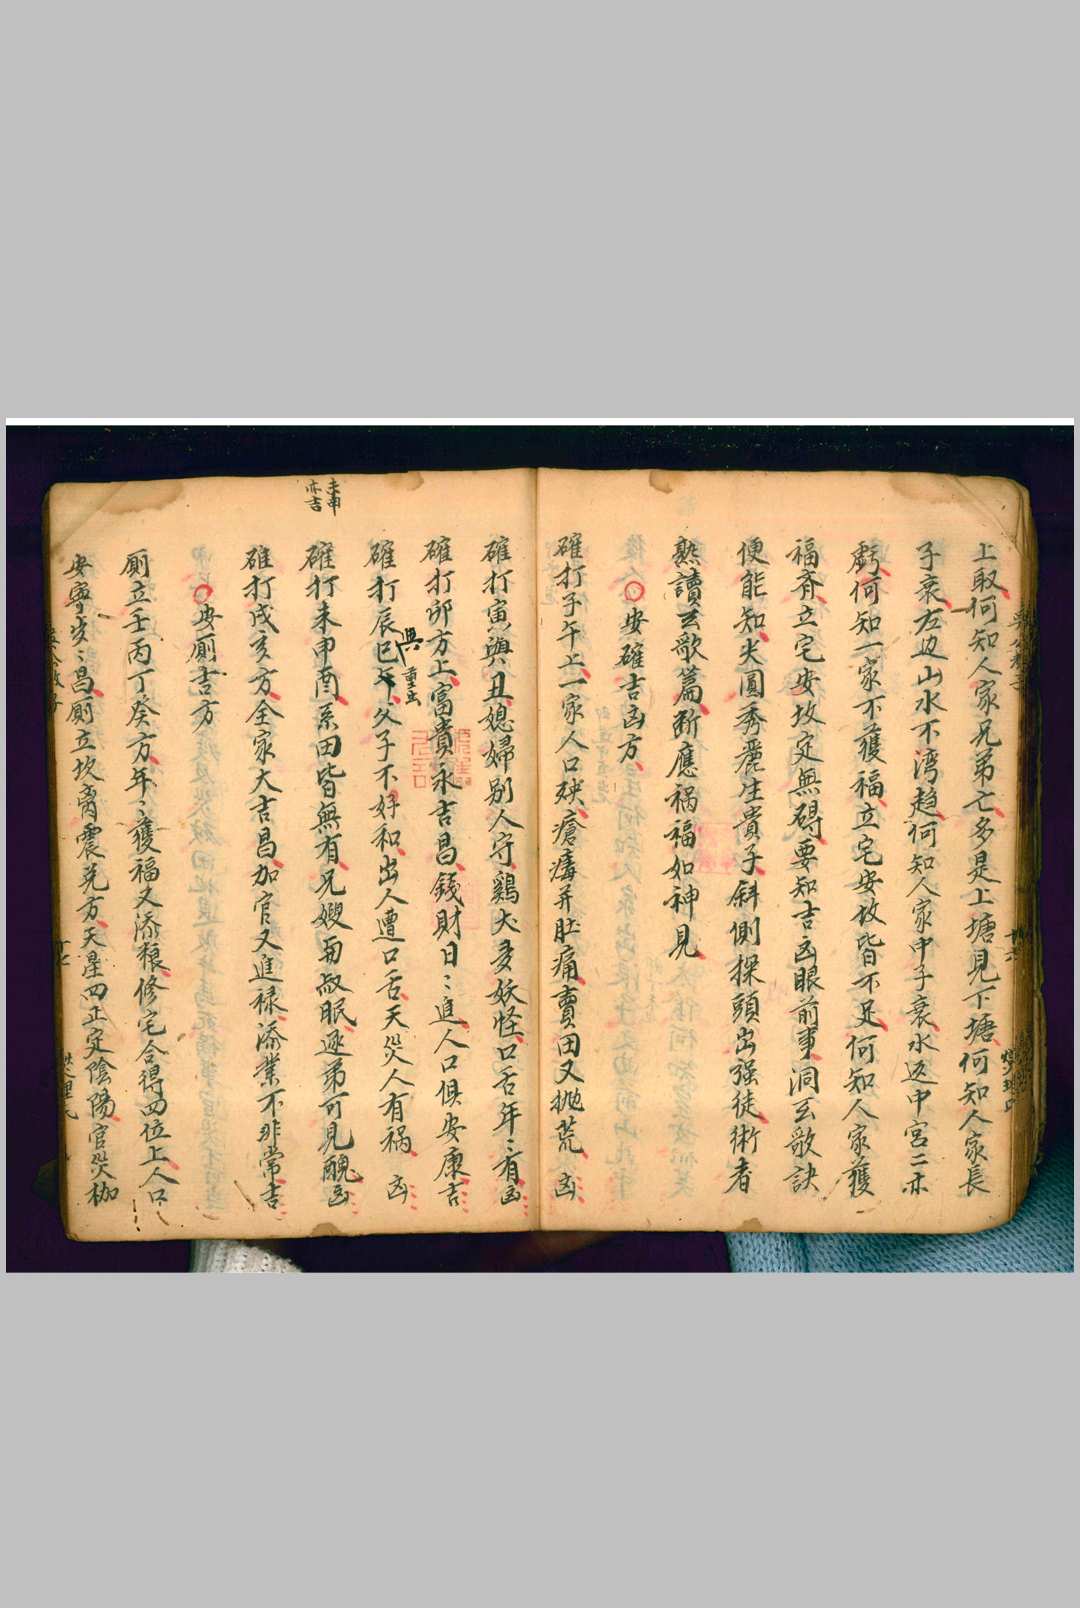 上取何知人家兄弟亡多是上塘見下塘何知人家長
子衰左边山水不湾趋何知人家中子衰水返中宮二亦
虧何知一家不獲福立宅安坟皆不足何知人家獲
福斉立宅安坟定無碍要知吉凶眼前事洞玄歌訣
便能知尖圓秀麗生貴子斜側探頭出强徒術者
熟讀玄歌篇断應禍福如神見
○安碓吉凶方
碓打子午上一家人口殃瘡病并肚痛賣田又抛荒 凶
碓打寅與丑媳婦别人守鷄犬多妖怪口舌年〻有凶
碓打卯方上富貴永吉昌錢財日〻進人口俱安康吉
碓打辰巳與父子不好和出人遭口舌天災人有禍 凶
重虫
碓打未申酉系田皆無有兄嫂与叔眠逐弟可見醜凶
未申
亦吉
碓打戌亥方全家大吉昌加官又進禄添業不非常吉
○安厠吉方
厠立壬丙丁癸方年〻獲福又添粮修宅合得四位上人口
安寧步〻昌厠立坎离震兑方天星四正定陰陽官災枷